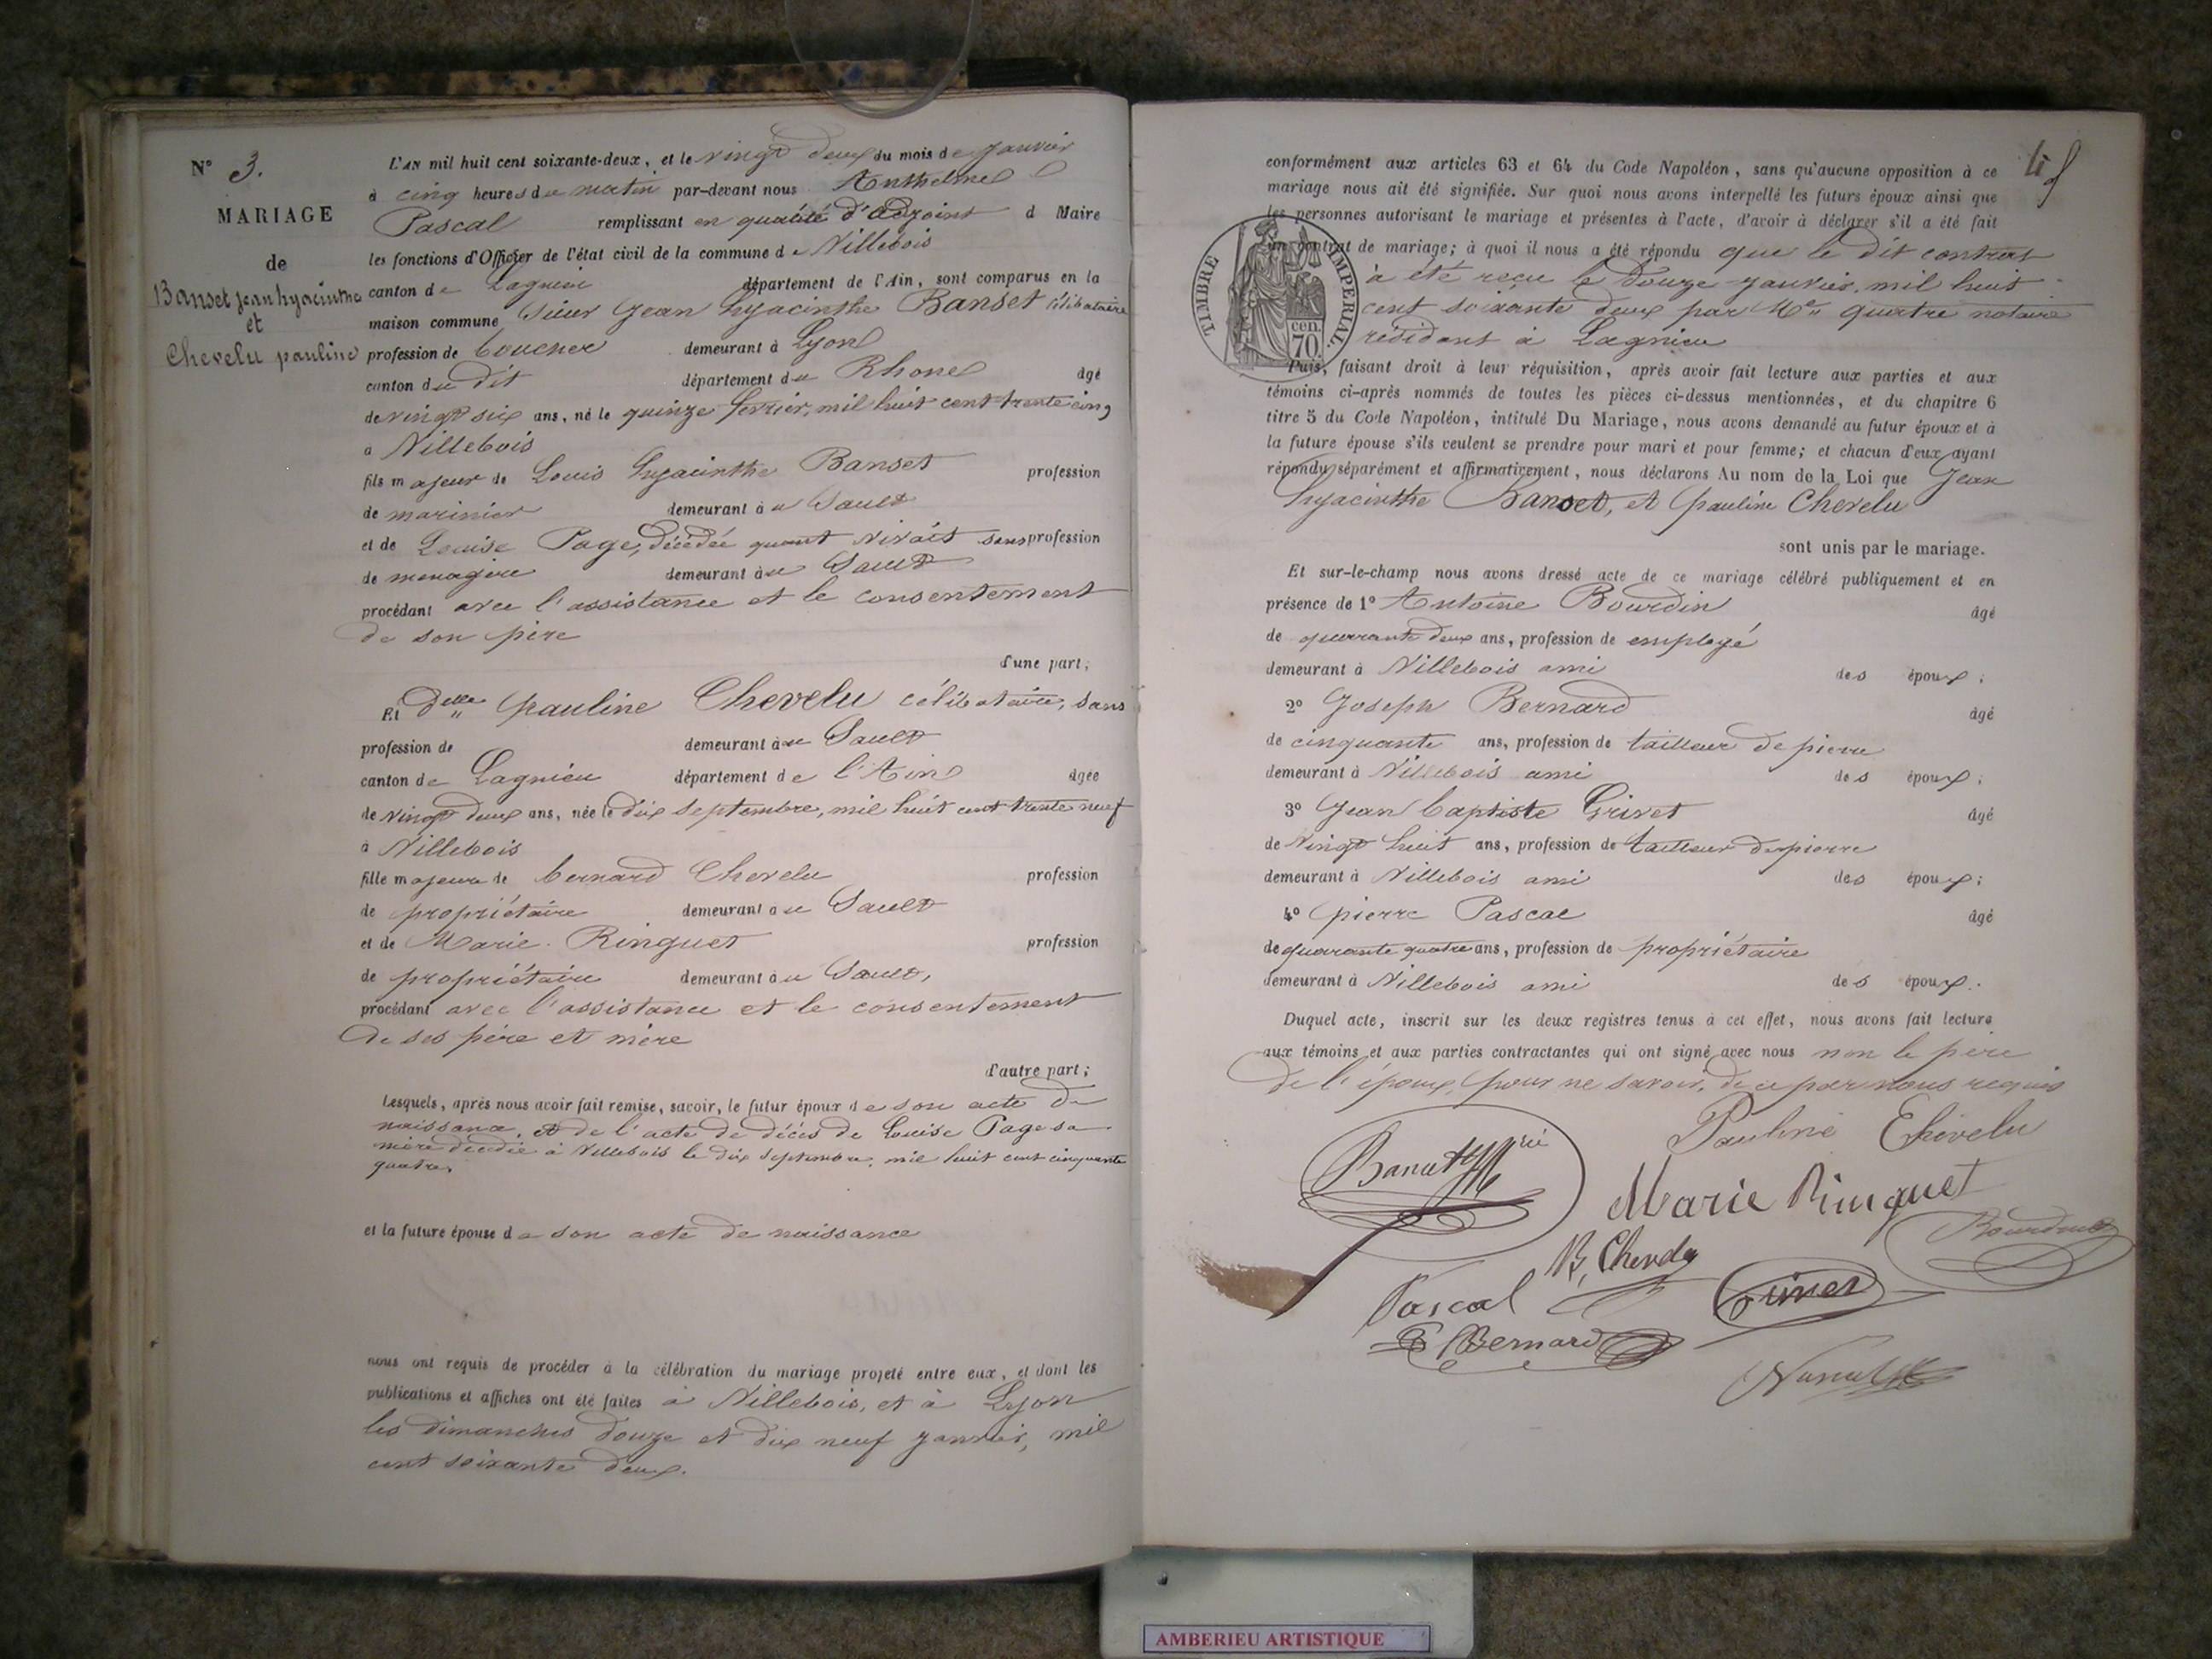 N° 3.
MARIAGE
de
Banset jean hyacinthe
et
Chevelu pauline
L'AN mil huit cent soixante-deux, et le vingt deux du mois de janvier
à cinq heures du matin par-devant nous Anthelme
Pascal remplissant en qualité d'adjoint d Maire
les fonctions d'Officier de l'état civil de la commune de Villebois
canton de Lagnieu département de l'Ain, sont comparus en la
maison commune Sieur Jean hyacinthe Banset célibataire
profession de boucher demeurant à Lyon
canton du dit département du Rhone âgé
de vingt six ans, né le quinze fevrier, mil huit cent trente cinq
à Villebois
fils majeur de Louis hyacinthe Banset profession
de marinier demeurant à u Sault
et de Louise Page, décédée quant vivait sans profession
de menagère demeurant à u Sault
procédant avec l'assistance et le consentement
de son père
d'une part;
Et Delle pauline Chevelu célibataire, sans
profession de demeurant à u Sault
canton de Lagnieu département de l'Ain âgée
de vingt deux ans, née le dix septembre, mil huit cent trente neuf
à Villebois
fille majeure de bernard Chevelu profession
de propriétaire demeurant à u Sault
et de Marie Ringuet profession
de propriétaire demeurant à u Sault,
procédant avec l'assistance et le consentement
de ses père et mère
d'autre part;
Lesquels, après nous avoir fait remise, savoir, le futur époux de son acte de
naissance, et de l'acte de décès de Louise Page sa
mère décédée à Villebois le dix septembre, mil huit cent cinquante
quatre,
et la future épouse de son acte de naissance
nous ont requis de procéder à la célébration du mariage projeté entre eux, et dont les
publications et affiches ont été faites à Villebois, et à Lyon
les dimanches douze et dix neuf janvier, mil
cent soixante deux.
conformément aux articles 63 et 64 du Code Napoléon, sans qu'aucune opposition à ce
mariage nous ait été signifiée. Sur quoi nous avons interpellé les futurs époux ainsi que
les personnes autorisant le mariage et présentes à l'acte, d'avoir à déclarer s'il a été fait
un contrat de mariage; à quoi il nous a été répondu que le dit contrat
à été reçu le douze janvier, mil huit
cent soixante deux par Me quatre notaire
résidant à Lagnieu
TIMBRE IMPERIAL.
70 cen.
Puis, faisant droit à leur réquisition, après avoir fait lecture aux parties et aux
témoins ci-après nommés de toutes les pièces ci-dessus mentionnées, et du chapitre 6
titre 5 du Code Napoléon, intitulé Du Mariage, nous avons demandé au futur époux et à
la future épouse s'ils veulent se prendre pour mari et pour femme; et chacun d'eux ayant
répondu séparément et affirmativement, nous déclarons Au nom de la Loi que Jean
hyacinthe Banset, et pauline Chevelu
sont unis par le mariage.
Et sur-le-champ nous avons dressé acte de ce mariage célébré publiquement et en
présence de 1° Antoine Bourdin âgé
de quarante deux ans, profession de employé
demeurant à Villebois ami des époux;
2° Joseph Bernard âgé
de cinquante ans, profession de tailleur de pierre
demeurant à Villebois ami des époux;
3° Jean baptiste Grivet âgé
de vingt huit ans, profession de tailleur de pierre
demeurant à Villebois ami des époux;
4° pierre Pascal âgé
de quarante quatre ans, profession de propriétaire
demeurant à Villebois ami des époux.
Duquel acte, inscrit sur les deux registres tenus à cet effet, nous avons fait lecture
aux témoins et aux parties contractantes qui ont signé avec nous non le père
de l'époux, pour ne savoir, de ce par nous requis
Pauline Chevelu
Marie Ringuet
Pascal
Bernard
AMBERIEU ARTISTIQUE